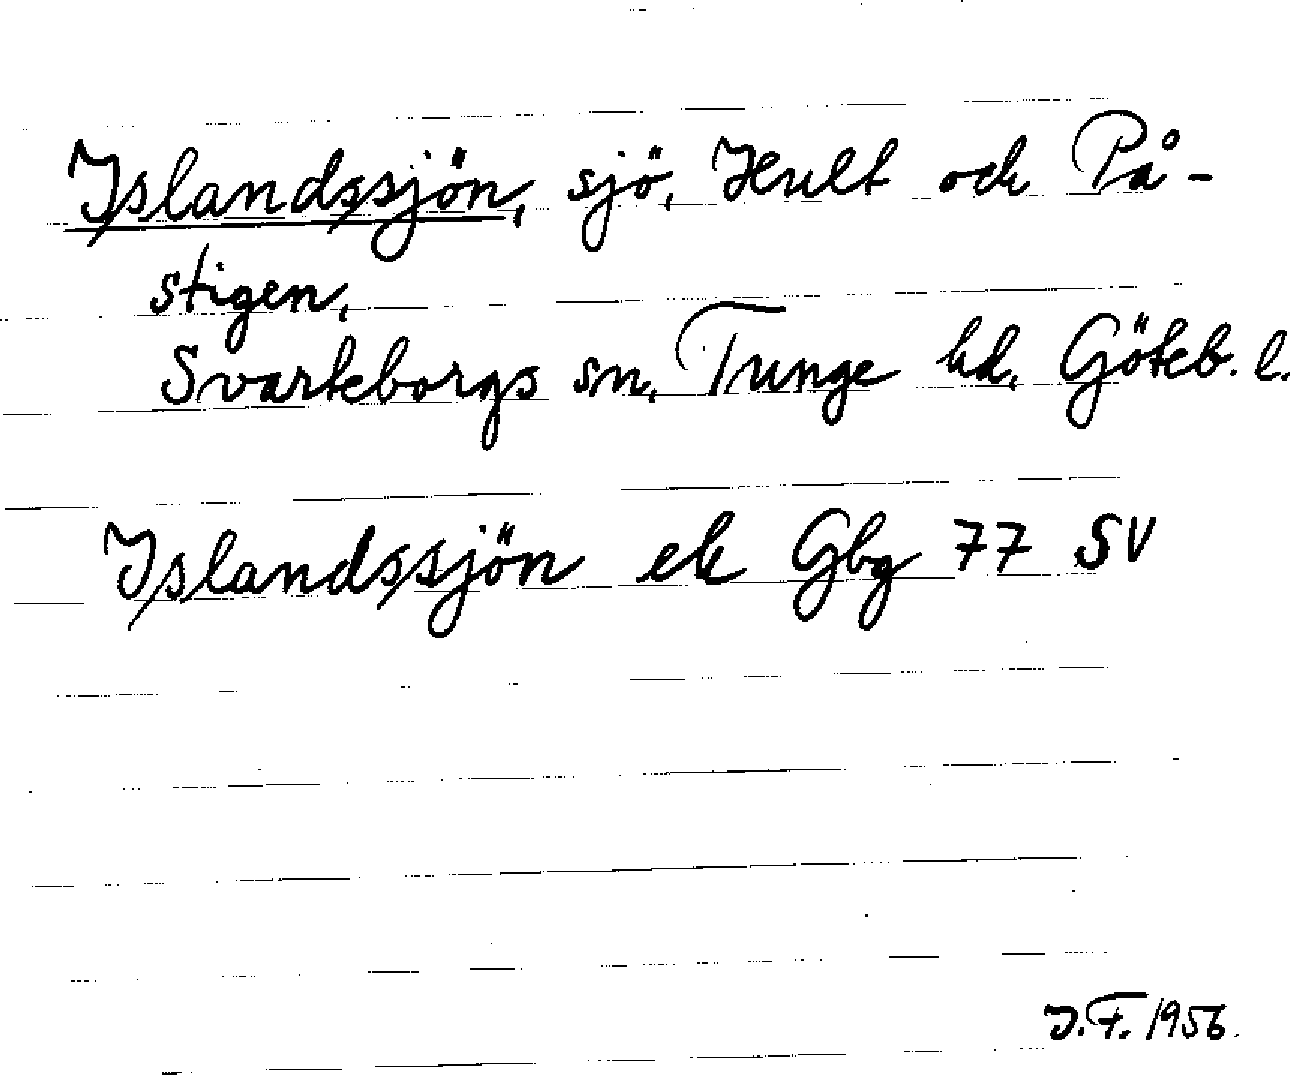 Islandssjön, sjö, Hult och På-
stigen,
Svarteborgs sn, Tunge hd, Göteb. l.
Islandssjön ek Gbg 77 SV
J.F. 1956.